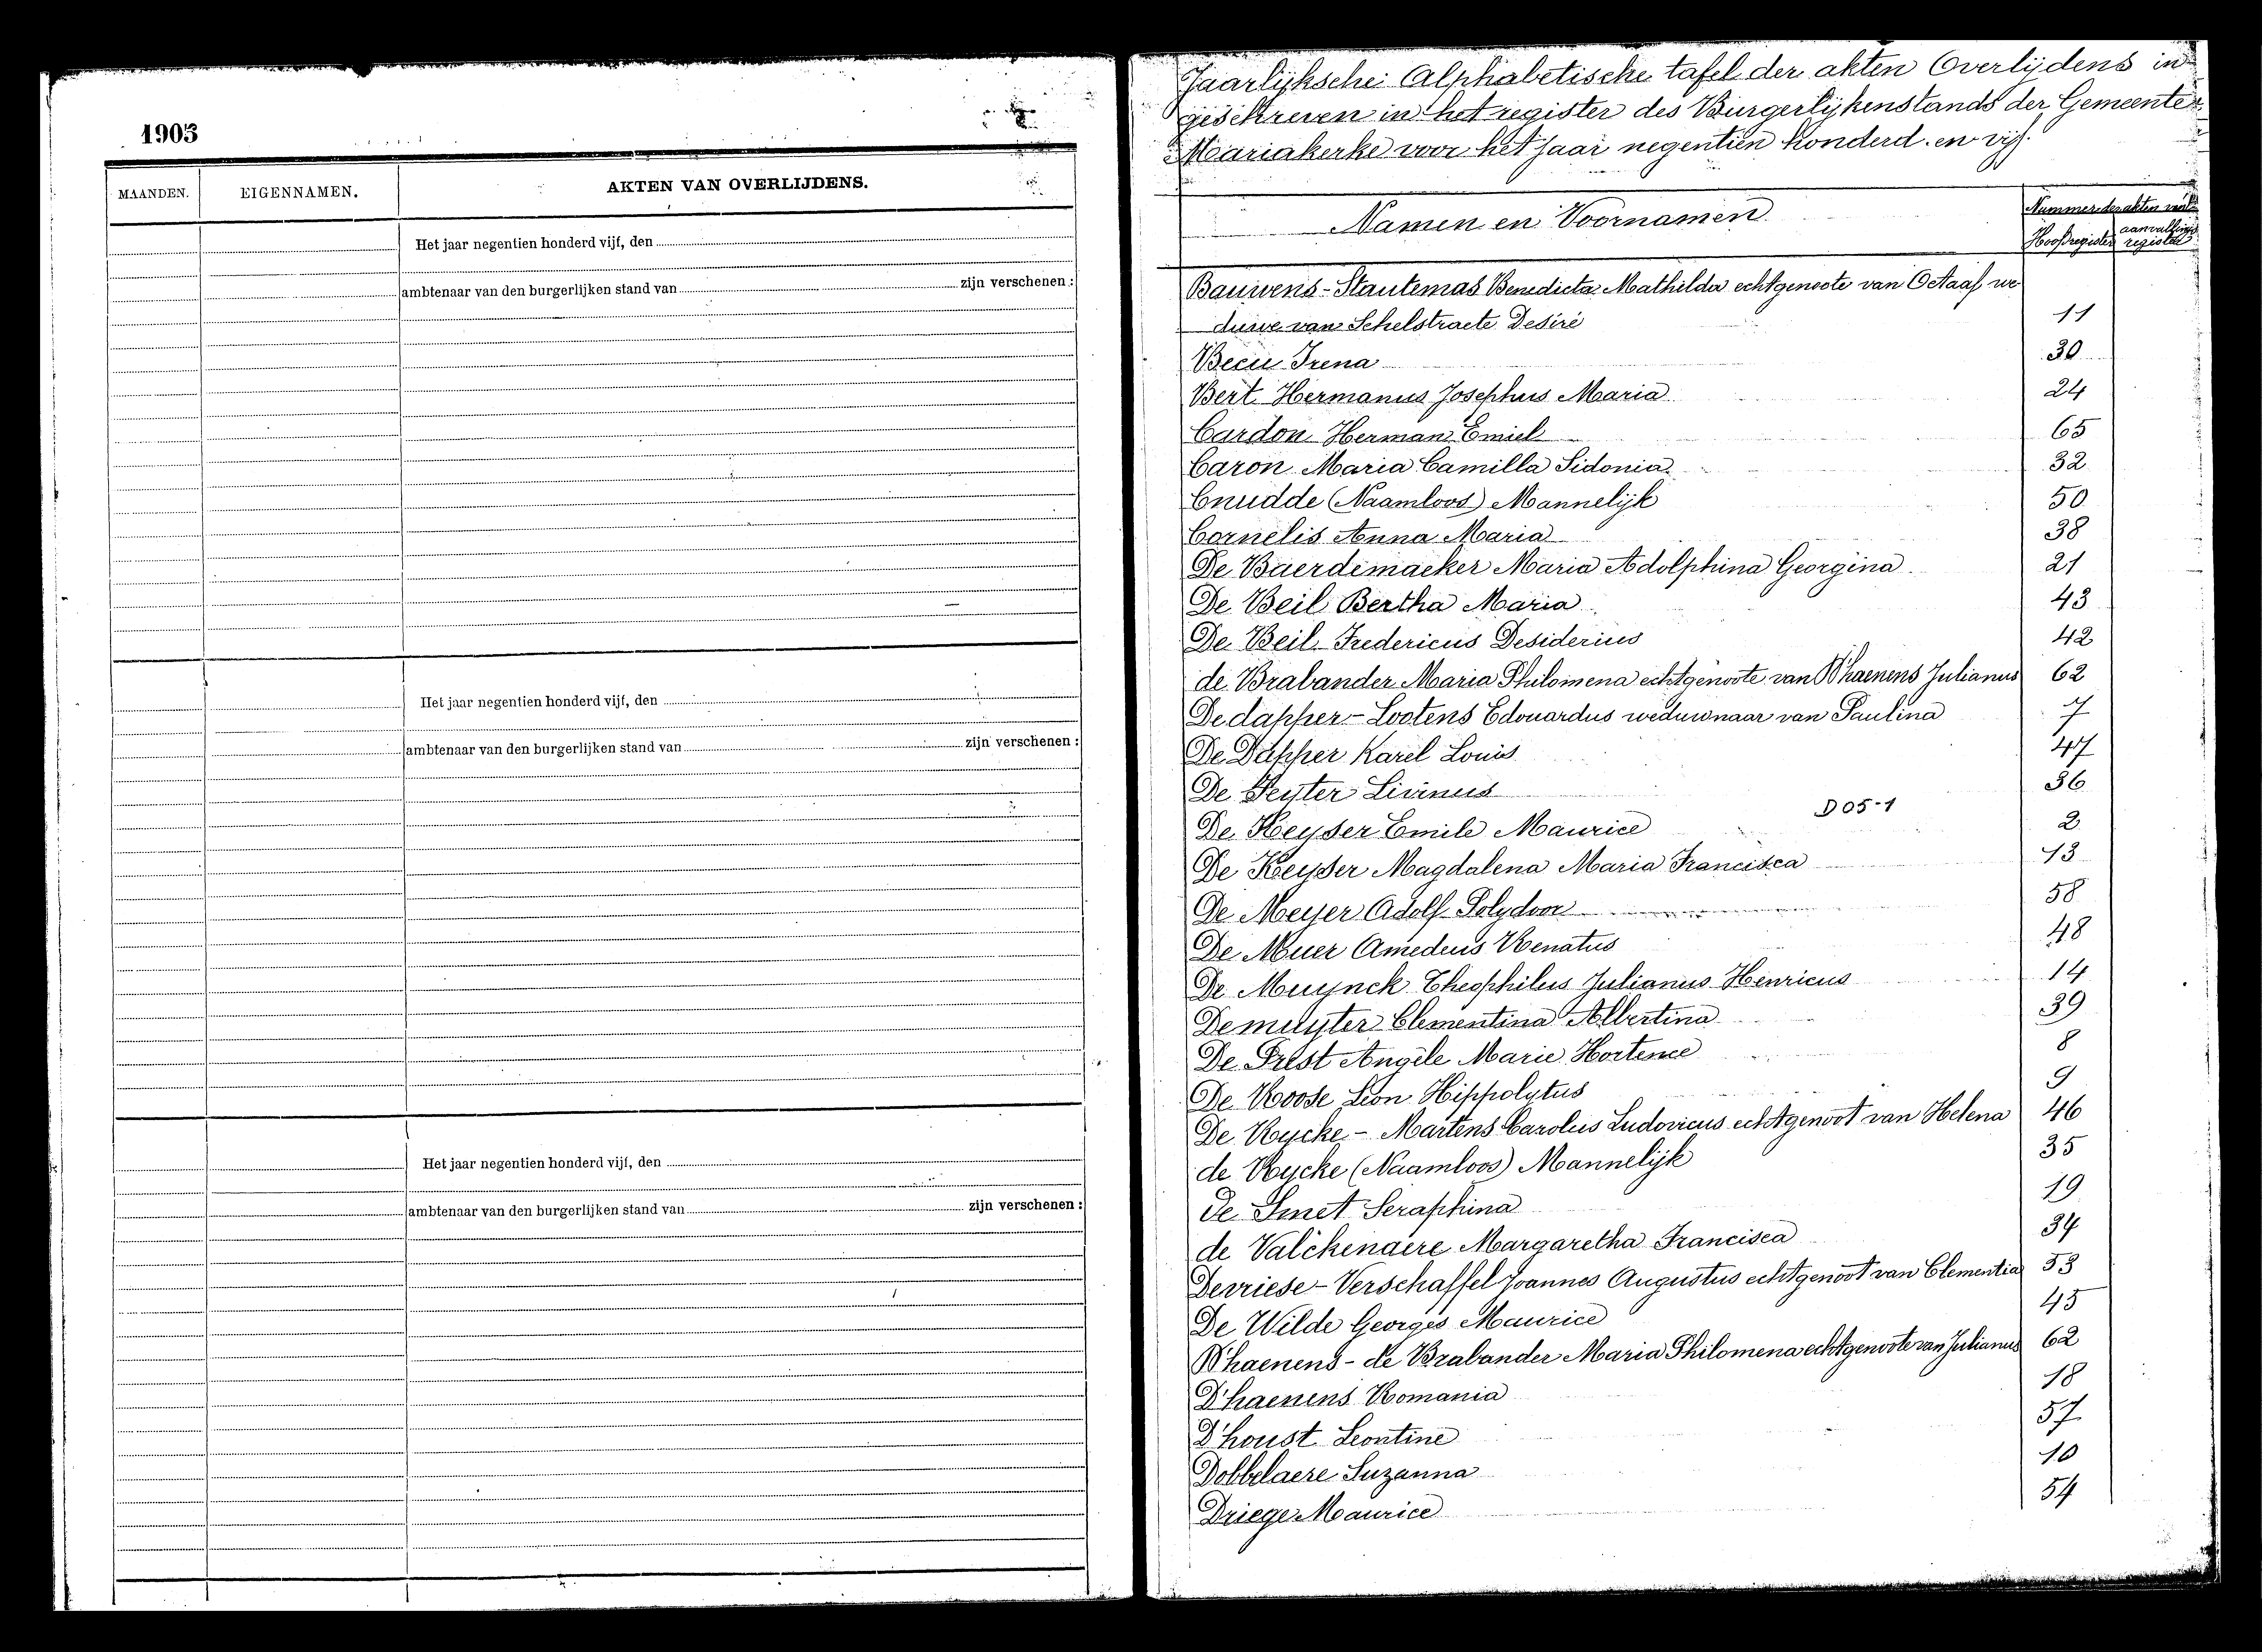 1905
MAANDEN. EIGENNAMEN. AKTEN VAN OVERLIJDENS.
Het jaar negentien honderd vijf, den
ambtenaar van den burgerlijken stand van zijn verschenen :
Het jaar negentien honderd vijf, den
ambtenaar van den burgerlijken stand van zijn verschenen :
Het jaar negentien honderd vijf, den
ambtenaar van den burgerlijken stand van zijn verschenen :
Jaarlijksche Alphabetische tafel der akten Overlijdens in
geschreven in het register des Burgerlijkenstands der Gemeente
Mariakerke voor het jaar negentien honderd en vijf.
Namen en Voornamen
Nummer der akten van
Hoofdregister aanvullings register
Bauwens-Stautemas Benedicta Mathilda echtgenoote van Octaaf we
duwe van Schelstraete Desiré 11
Becu Irena 30
Bert Hermanus Josephus Maria 24
Cardon Herman Emiel 65
Caron Maria Camilla Sidonia 32
Cnudde (Naamloos) Mannelijk 50
Cornelis Anna Maria 38
De Baerdemaeker Maria Adolphina Georgina 21
De Beil Bertha Maria 43
De Beil Fredericus Desiderius 42
de Brabander Maria Philomena echtgenoote van D'haenens Julianus 62
Dedapper-Lootens Edouardus weduwnaar van Paulina 7
De Dapper Karel Louis 47
De Feyter Livinus 36
De Keyser Emile Maurice D05-1 2
De Keyser Magdalena Maria Francisca 13
De Meyer Adolf Polydoor 58
De Muer Amedeus Renatus 48
De Muynck Theophilus Julianus Henricus 14
Demuyter Clementina Albertina 39
De Prest Angèle Marie Hortence 8
De Roose Leon Hippolytus 9
De Rycke - Martens Carolus Ludovicus echtgenoot van Helena 46
de Rycke (Naamloos) Mannelijk 35
De Smet Seraphina 19
de Valckenaere Margaretha Francisca 34
Devriese-Verschaffel Joannes Augustus echtgenoot van Clementia 53
De Wilde Georges Maurice 45
D'haenens - de Brabander Maria Philomena echtgenoote van Julianus 62
D'haenens Romania 18
D'houst Leontine 57
Dobbelaere Suzanna 10
Driege Maurice 54